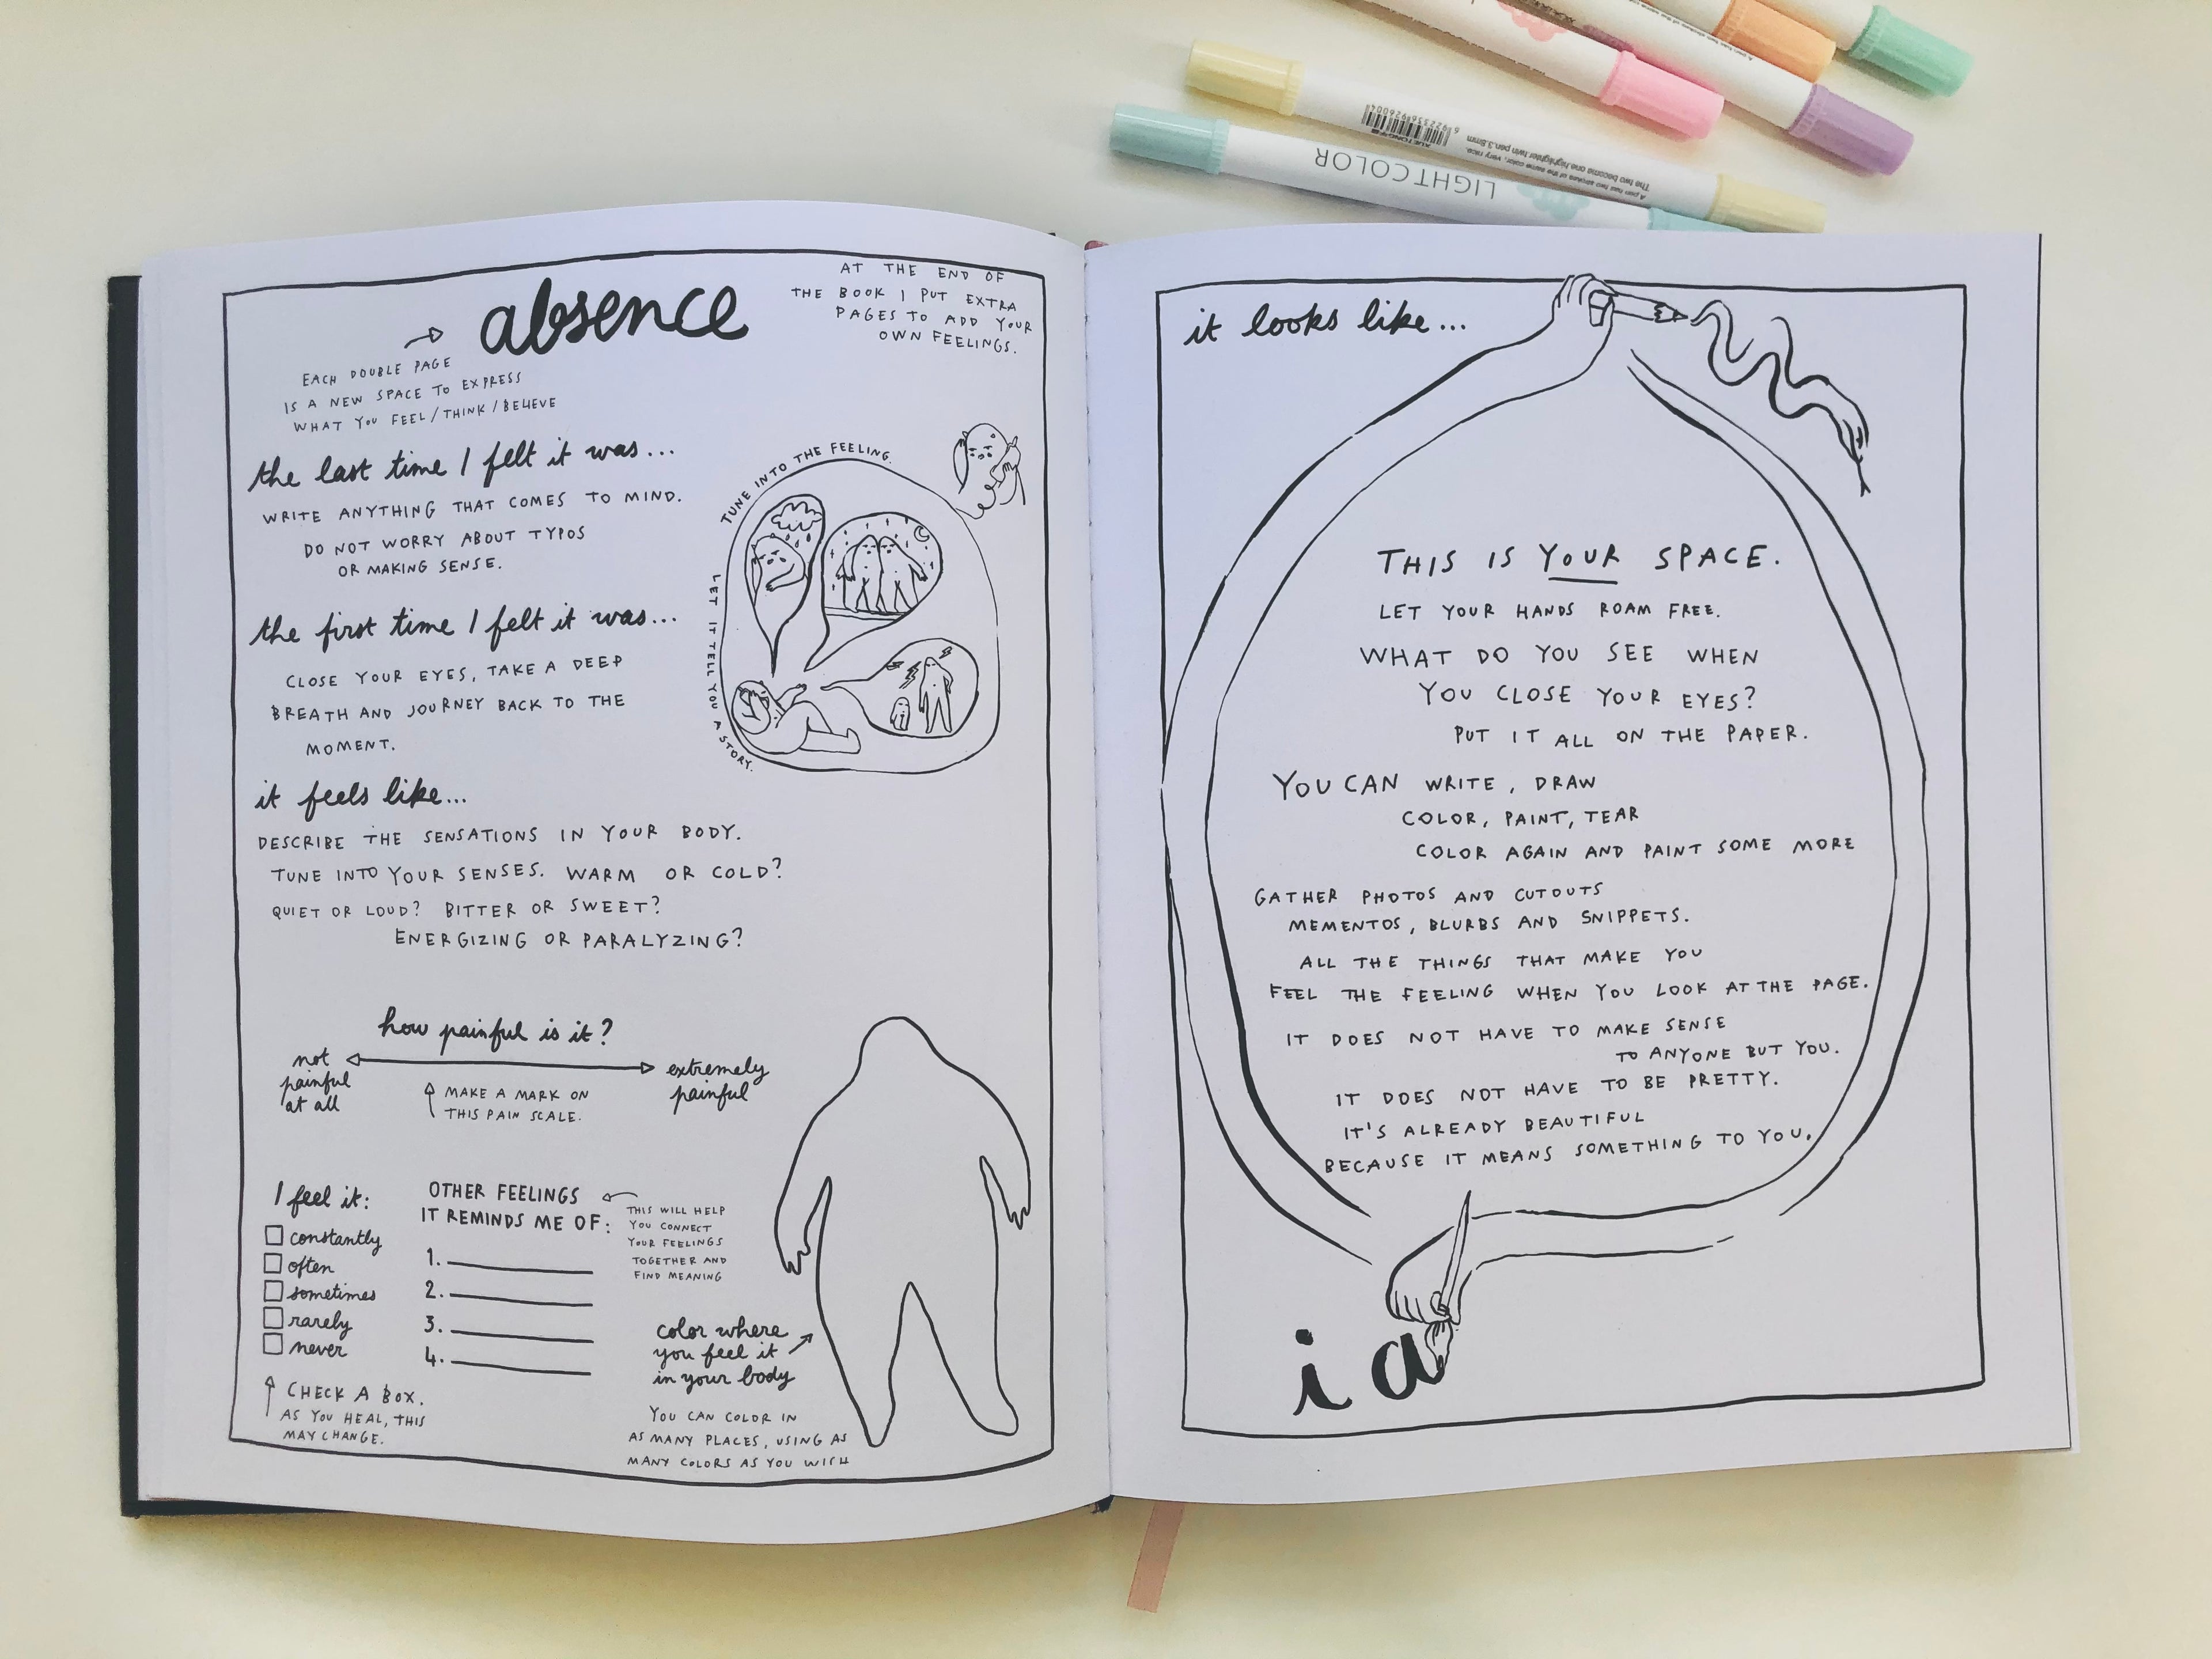 absence
AT THE END OF
THE BOOK I PUT EXTRA
PAGES TO ADD YOUR
OWN FEELINGS.
EACH DOUBLE PAGE
IS A NEW SPACE TO EXPRESS
WHAT YOU FEEL/THINK/BELIEVE
the last time I felt it was...
WRITE ANYTHING THAT COMES TO MIND.
DO NOT WORRY ABOUT TYPOS
OR MAKING SENSE.
TUNE INTO THE FEELING.
LET IT TELL YOU A STORY.
the first time I felt it was...
CLOSE YOUR EYES, TAKE A DEEP
BREATH AND JOURNEY BACK TO THE
MOMENT.
it feels like...
DESCRIBE THE SENSATIONS IN YOUR BODY.
TUNE INTO YOUR SENSES. WARM OR COLD?
QUIET OR LOUD? BITTER OR SWEET?
ENERGIZING OR PARALYZING?
how painful is it?
not
painful
at all
extremely
painful
MAKE A MARK ON
THIS PAIN SCALE.
I feel it:
constantly
often
sometimes
rarely
never
CHECK A BOX.
AS YOU HEAL, THIS
MAY CHANGE.
OTHER FEELINGS
IT REMINDS ME OF:
1.
2.
3.
4.
THIS WILL HELP
YOU CONNECT
YOUR FEELINGS
TOGETHER AND
FIND MEANING
color where
you feel it
in your body
YOU CAN COLOR IN
AS MANY PLACES, USING AS
MANY COLORS AS YOU WISH
it looks like...
THIS IS YOUR SPACE.
LET YOUR HANDS ROAM FREE.
WHAT DO YOU SEE WHEN
YOU CLOSE YOUR EYES?
PUT IT ALL ON THE PAPER.
YOU CAN WRITE, DRAW
COLOR, PAINT, TEAR
COLOR AGAIN AND PAINT SOME MORE
GATHER PHOTOS AND CUTOUTS
MEMENTOS, BLURBS AND SNIPPETS.
ALL THE THINGS THAT MAKE YOU
FEEL THE FEELING WHEN YOU LOOK AT THE PAGE.
IT DOES NOT HAVE TO MAKE SENSE
TO ANYONE BUT YOU.
IT DOES NOT HAVE TO BE PRETTY.
IT'S ALREADY BEAUTIFUL
BECAUSE IT MEANS SOMETHING TO YOU.
i a
LIGHTCOLOR
A pen has two strokes of the same color, very nice.
The two become one.highlighter twin pen.3.8mm
6922235926004